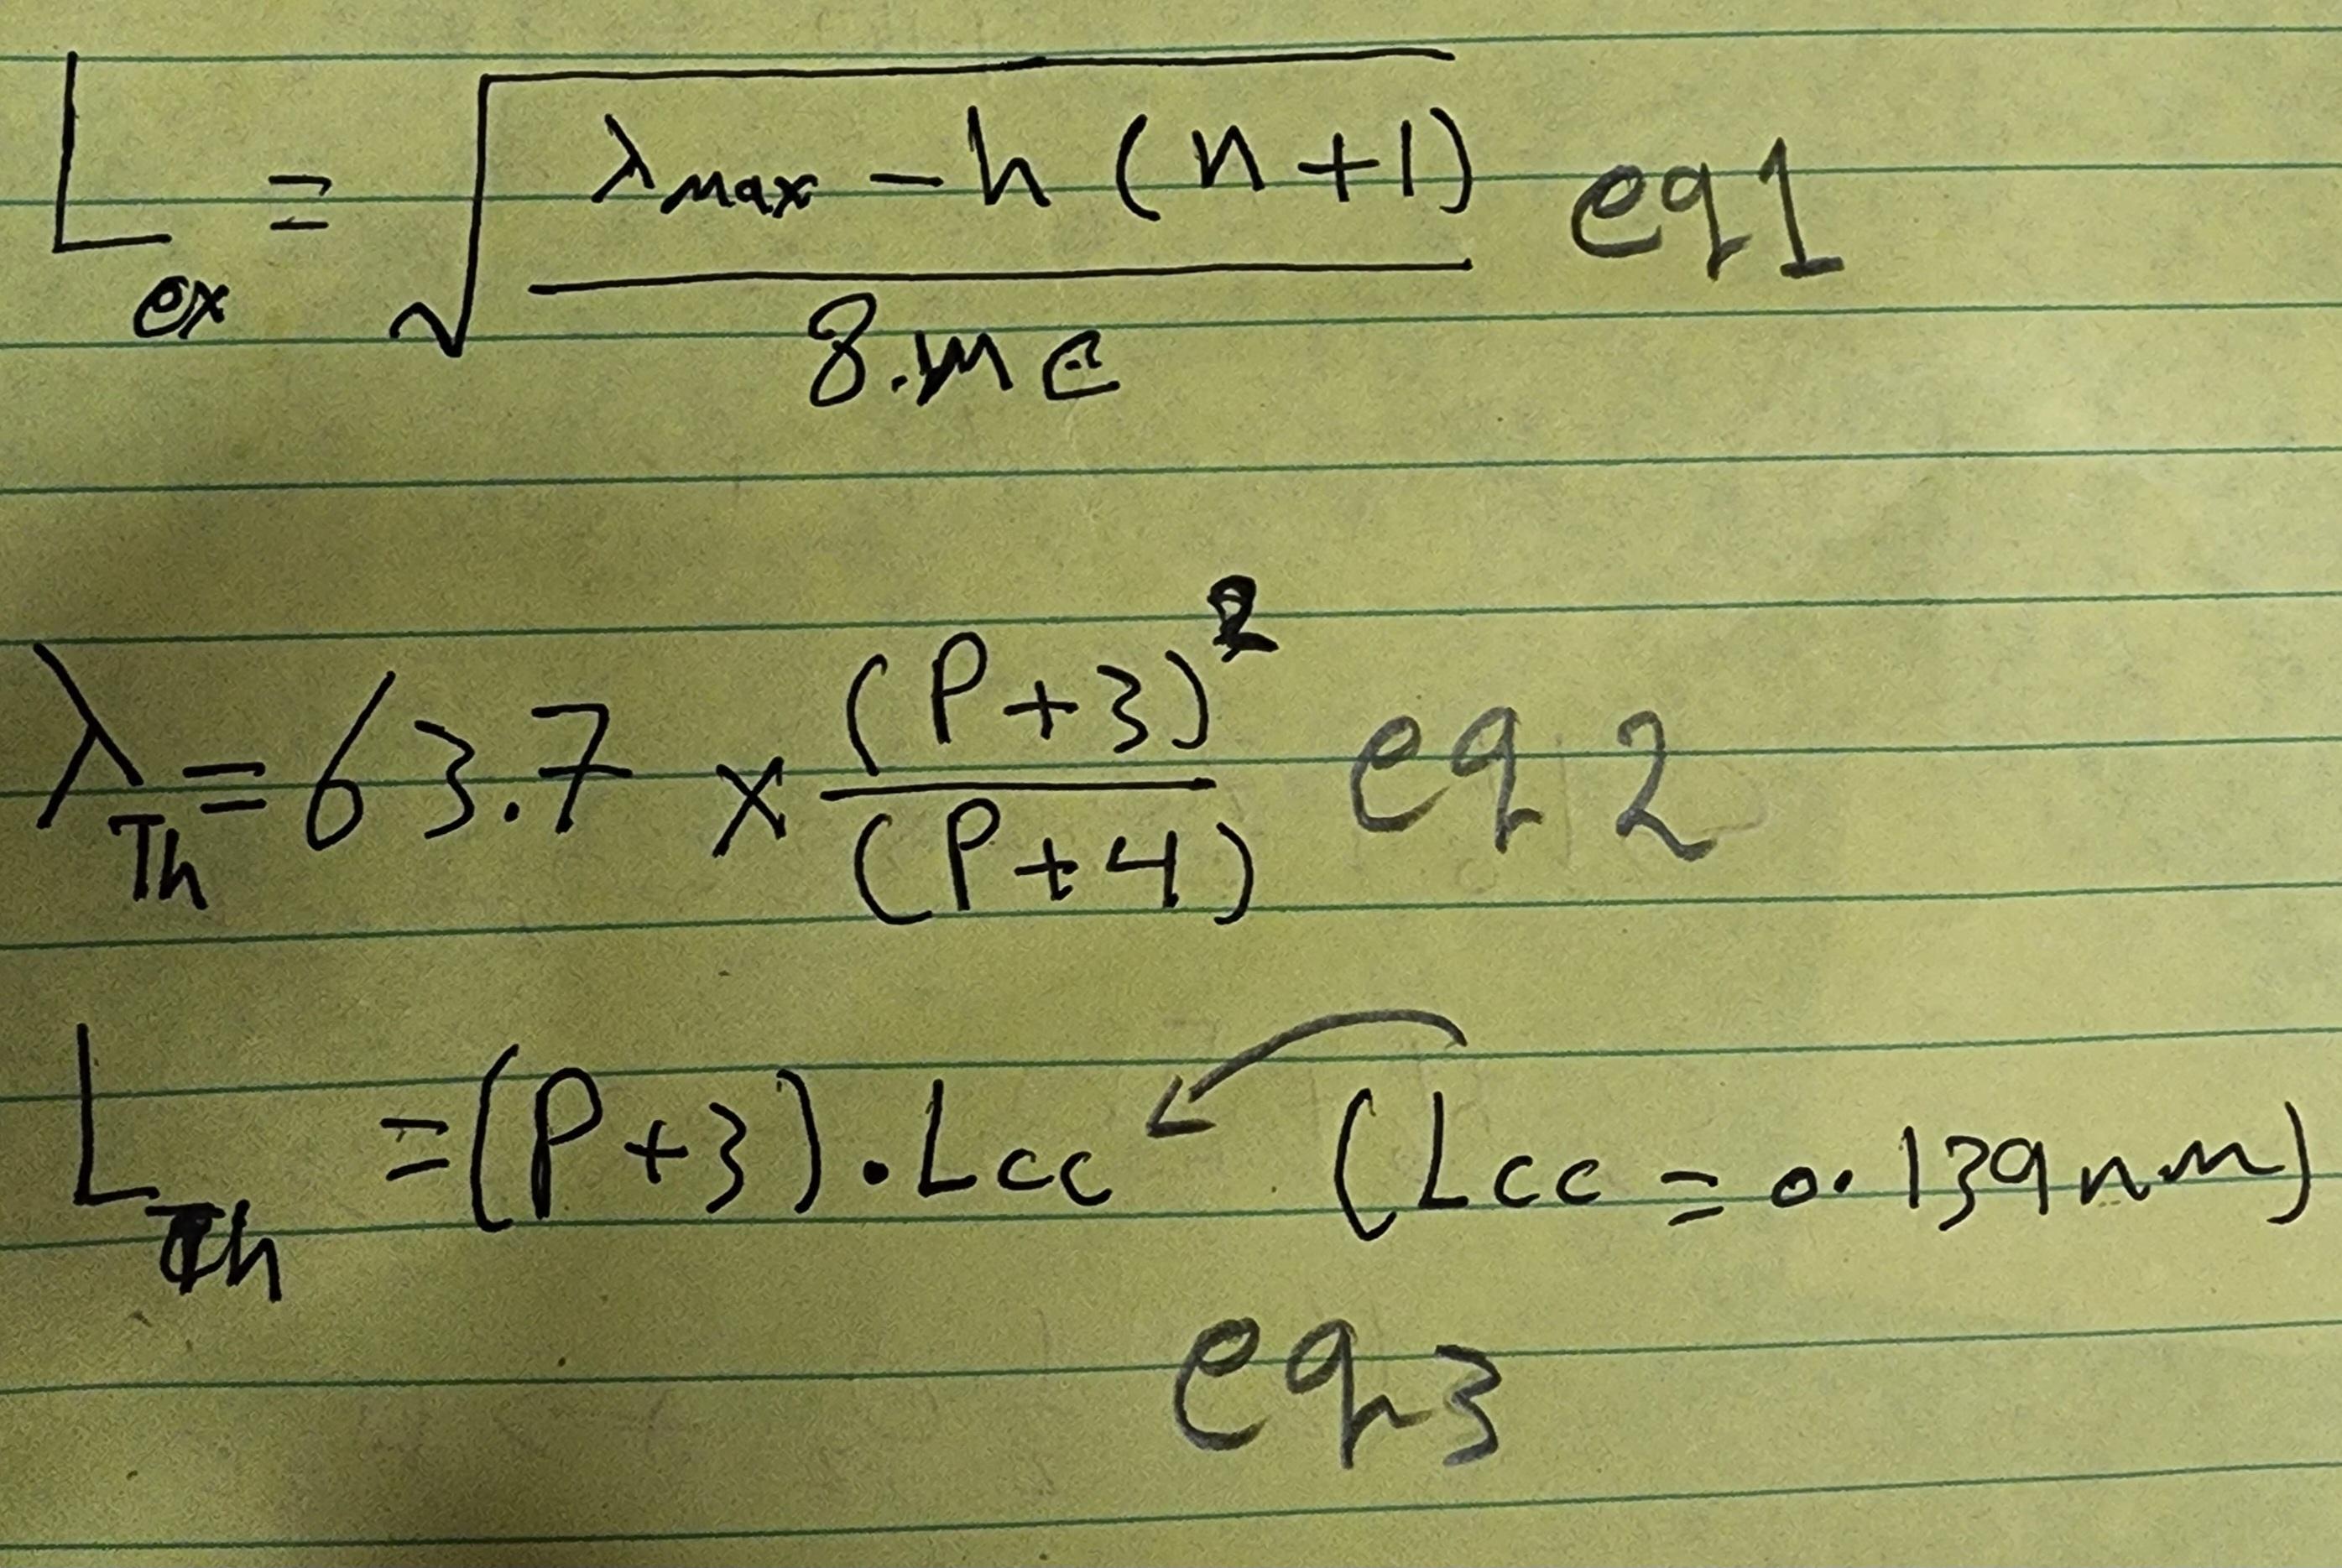 L_ex = √((λmax - h (n+1)) / (8.me)) eq1
λ_Th = 63.7 × (P+3)² / (P+4) eq 2
L_Th = (P+3) . Lcc ← (Lcc = 0.139nm)
eq3